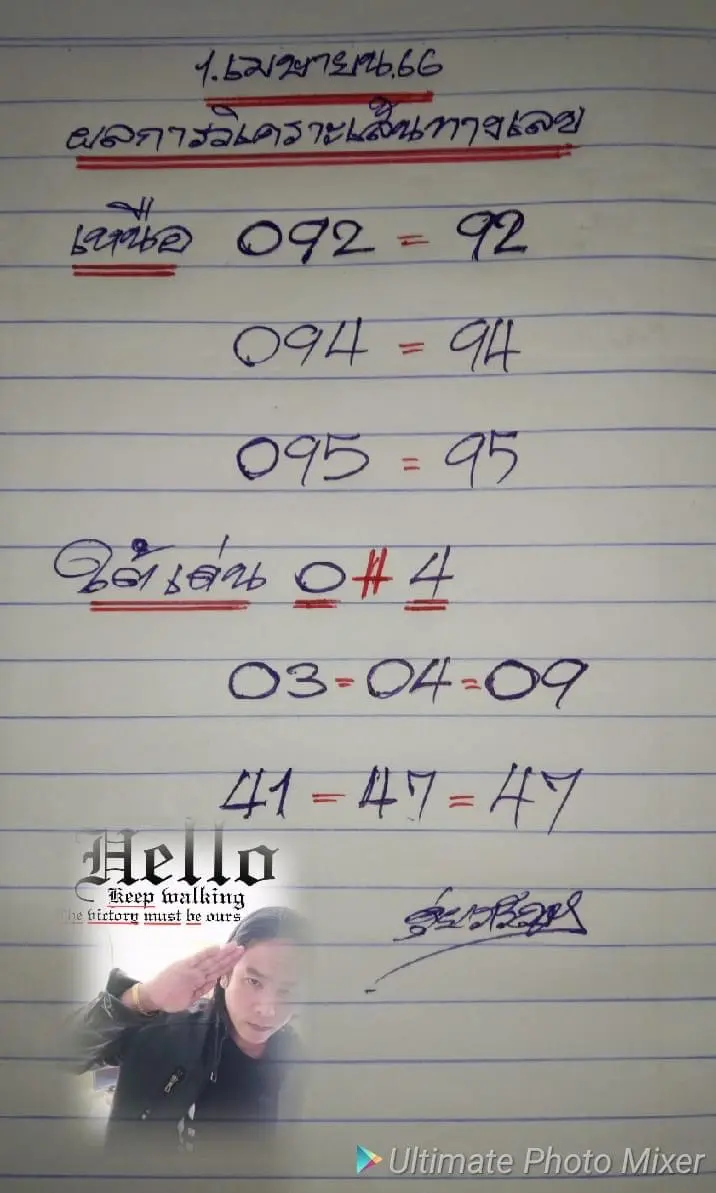 1.เมษายน.66
ผลการวิเคราะเส้นทางเลข
เหนือ 092 = 92
094 = 94
095 = 95
ใต้เด่น 0 # 4
03 - 04 = 09
41 - 47 = 47
Hello
Keep walking
The victory must be ours
Ultimate Photo Mixer